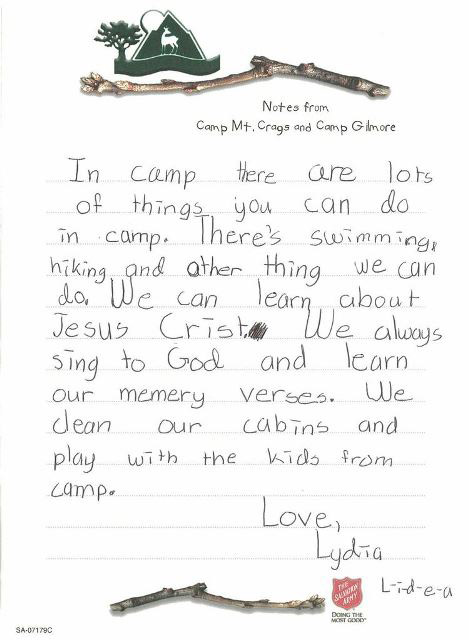 Notes from
Camp Mt. Crags and Camp Gilmore
In camp there are lots
of things you can do
in camp. There's swimming,
hiking and other thing we can
do. We can learn about
Jesus Crist. We always
sing to God and learn
our memery verses. We
clean our cabins and
play with the kids from
camp.
Love,
Lydia
L-i-d-e-a
THE
SALVATION
ARMY
DOING THE
MOST GOOD™
SA-07179C